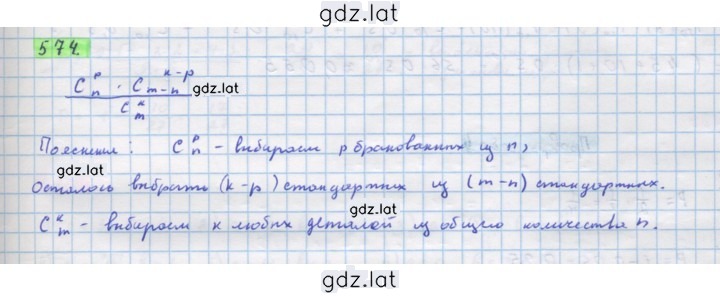 gdz.lat
574.
C_n^p · C_{m-n}^{k-p}
gdz.lat
C_m^k
Пояснил: C_n^p - выбираем p бракованных из n,
Осталось выбрать (k-p) стандартных из (m-n) стандартных.
gdz.lat
C_m^k - выбираем к любых деталей из общего количества n.
gdz.lat
gdz.lat